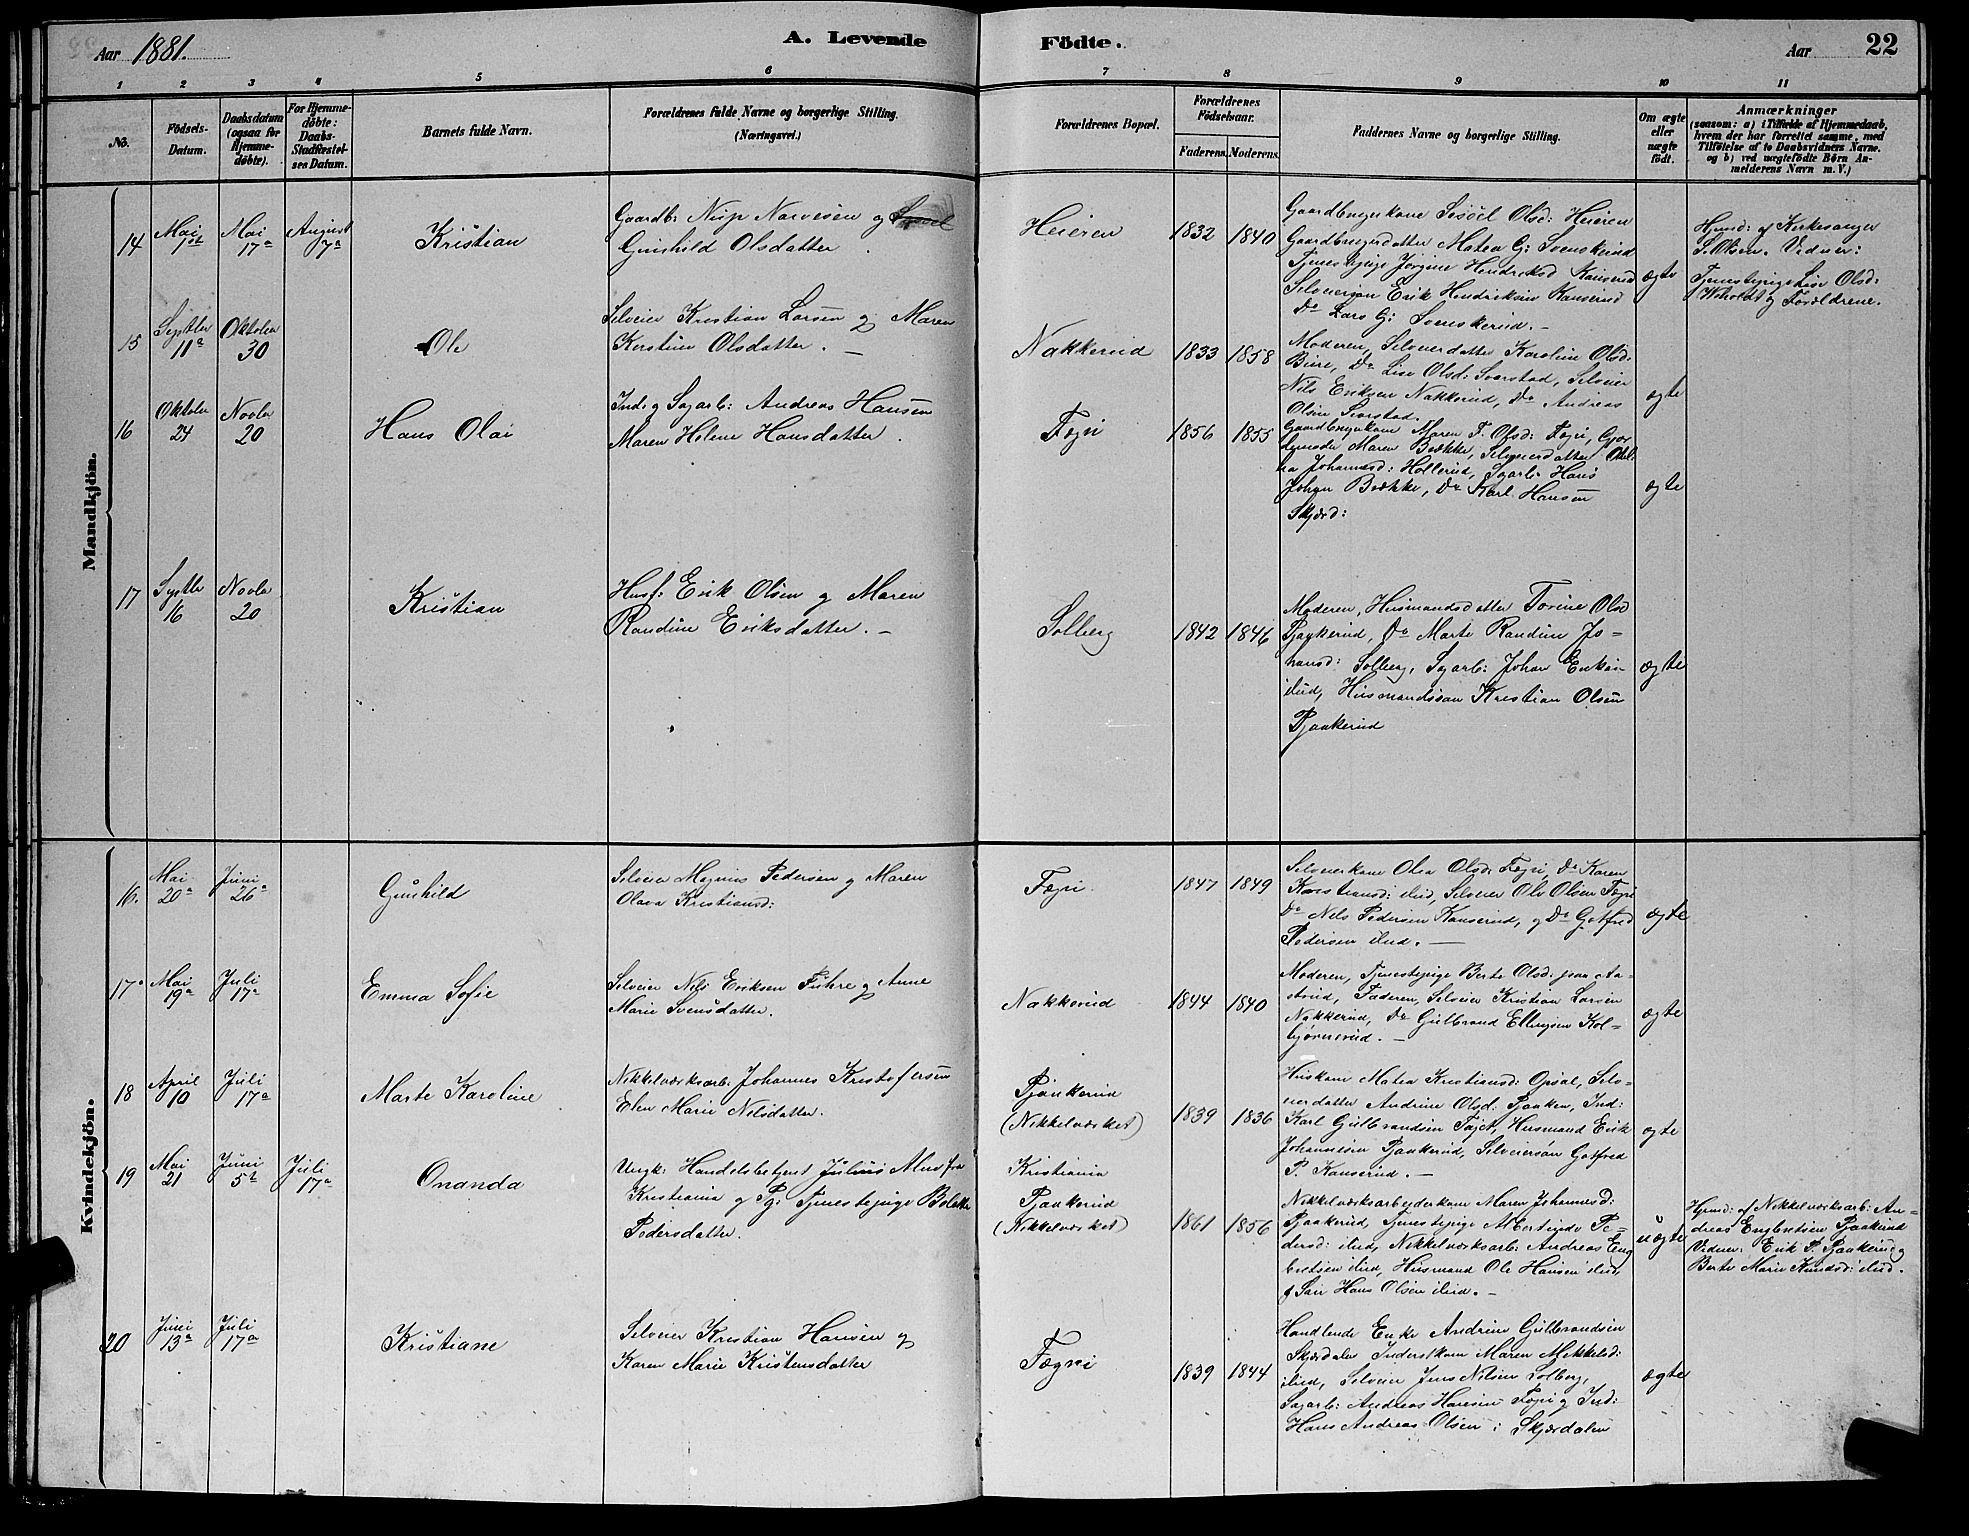 Aar 1881.
A. Levende
Födte.
Aar
22
1 2 3 4 5 6 7 8 9 10 11
No.
Födsels-
Datum.
Daabsdatum
(ogsaa for
Hjemme-
døbte).
For Hjemme-
døbte:
Daabs-
Stadfæstel-
ses Datum.
Barnets fulde Navn.
Forældrenes fulde Navne og borgerlige Stilling.
(Næringsvei.)
Forældrenes Bopæl.
Forældrenes
Födselsaar.
Faderens. Moderens.
Faddernes Navne og borgerlige Stilling.
Om ægte
eller
uægte
födt.
Anmærkninger
(saasom: a) i Tilfælde af Hjemmedaab,
hvem der har forrettet samme, med
Tilföielse af to Daabsvidners Navne.
og b) ved uægtefödte Börn An-
melderens Navn m.V.)
Mandkjön.
14
Mai
1ste
Mai
17de
August
7de
Kristian
Gaardb: Nirp Narvesen og
Gunhild Olsdatter
Heieren
1832 1840
Gaardbrugerkone Sissel Olsd: Heieren
Gaardbrugerdatter Matea G: Svenskerud
Tjenestepige Jørgine Hendriksd Kanserud
Selveiersøn Erik Hendriksen Kanserud
Do Lars G: Svenskerud. –
ægte
Hjmd: af Kirkesanger
S. Olsen. Vidner:
Tjenestepige Lise Olsd:
Wiholdt og Forældrene.
15
Septbr
11te
Oktober
30
Ole
Selveier Kristian Larsen og Maren
Kirstine Olsdatter. –
Nakkerud
1833 1858
Moderen, Selveierdatter Karoline Olsd:
Bure, Do Lise Olsd: Svarstad, Selveier
Nils Eriksen Nakkerud, Do Andreas
Olsen Svarstad.
ægte
16
Oktober
24
Novbr
20
Hans Olai
Ind. og Sagarb: Andreas Hansen
Maren Helene Hansdatter.
Fægri
1856 1855
Gaardbrugerkone Maren T. Olsd: Fægri, Gjor
demoder Maren Bække, Selveierdatter Othil-
ia Johannesd: Hollerud, Sagarb: Hans
Johan Bække, Do Karl Hansen
Skjærd:
ægte
17
Septbr
16
Novbr
20
Kristian
Husf: Erik Olsen og Maren
Randine Eriksdatter. –
Solberg
1842 1846
Moderen, Husmandsdatter Torine Olsd
Pjaakerud, Do Marte Randine Jo-
hansd: Solberg, Sagarb: Johan Eriksen
ibid, Husmandssøn Kristian Olsen
Pjaakerud
ægte
Kvindekjön.
16.
Mai
20de
Juni
26de
Gunhild
Selveier Magnus Pedersen og Maren
Olava Kristiansd:
Fægri
1847 1849
Selveierkone Olea Olsd: Fægri, Do Karen
Kristiansd: ibid, Selveier Ole Olsen Fægri
Do Nels Pedersen Kanserud, og Do Gotfred
Pedersen ibid. –
ægte
17
Mai
19de
Juli
17de
Emma Sofie
Selveier Nils Eriksen Fuhre og Anne
Marie Svensdatter.
Nakkerud
1844 1840
Moderen, Tjenestepige Berte Olsd: paa Aa-
strud, Faderen, Selveier Kristian Larsen
Nakkerud, Do Gulbrand Ellingsen Kol-
bjørnsrud. –
ægte
18
April
10
Juli
17de
Marte Karoline
Nikkelværksarb. Johannes Kristofersen
Elen Marie Nelsdatter.
Pjaakerud
(Nikkelværket)
1839 1836
Huskone Matea Kristiansd: Opsal, Selv-
eierdatter Andrine Olsd: Pjaaken, Ind:
Karl Gulbrandsen Fajet, Husmand Erik
Johannesen Pjaakerud, Selveiersøn Gotfred
P. Kanserud. –
ægte
19
Mai
21
Juni
5te
Juli
17de
Onanda
Ungk: Handelsbetjent Julius Alm fra
Kristiania og Pg: Tjenestepige Bolette
Pedersdatter.
Kristiania
Pjaakerud
(Nikkelværket)
1861 1856
Nikkelværksarbeiderkone Maren Johannesd:
Pjaakerud, Tjenestepige Albertine Pe-
dersd: ibid, Nikkelværksarb: Andreas Eng
bretsen ibid, Husmand Ole Hansen ibid,
og Søn Hans Olsen ibid. –
uægte
Hjmd: af Nikkelværksarb: An-
dreas Engbretsen Pjaakerud
Vidner: Erik P. Pjaakerud og
Berte Marie Knudsd: ibid.
20
Juni
13de
Juli
17de
Kristiane
Selveier Kristian Hansen og
Karen Marie Kristensdatter
Fægri
1839 1844
Handlende Enke Andrine Gulbrandsen
Skjærdalen Inderstkone Maren Mikkelsd:
ibid, Selveier Jens Nilsen Solberg,
Sagarb: Andreas Hansen Fægri og Ind:
Hans Andreas Olsen i Skjærdalen
ægte